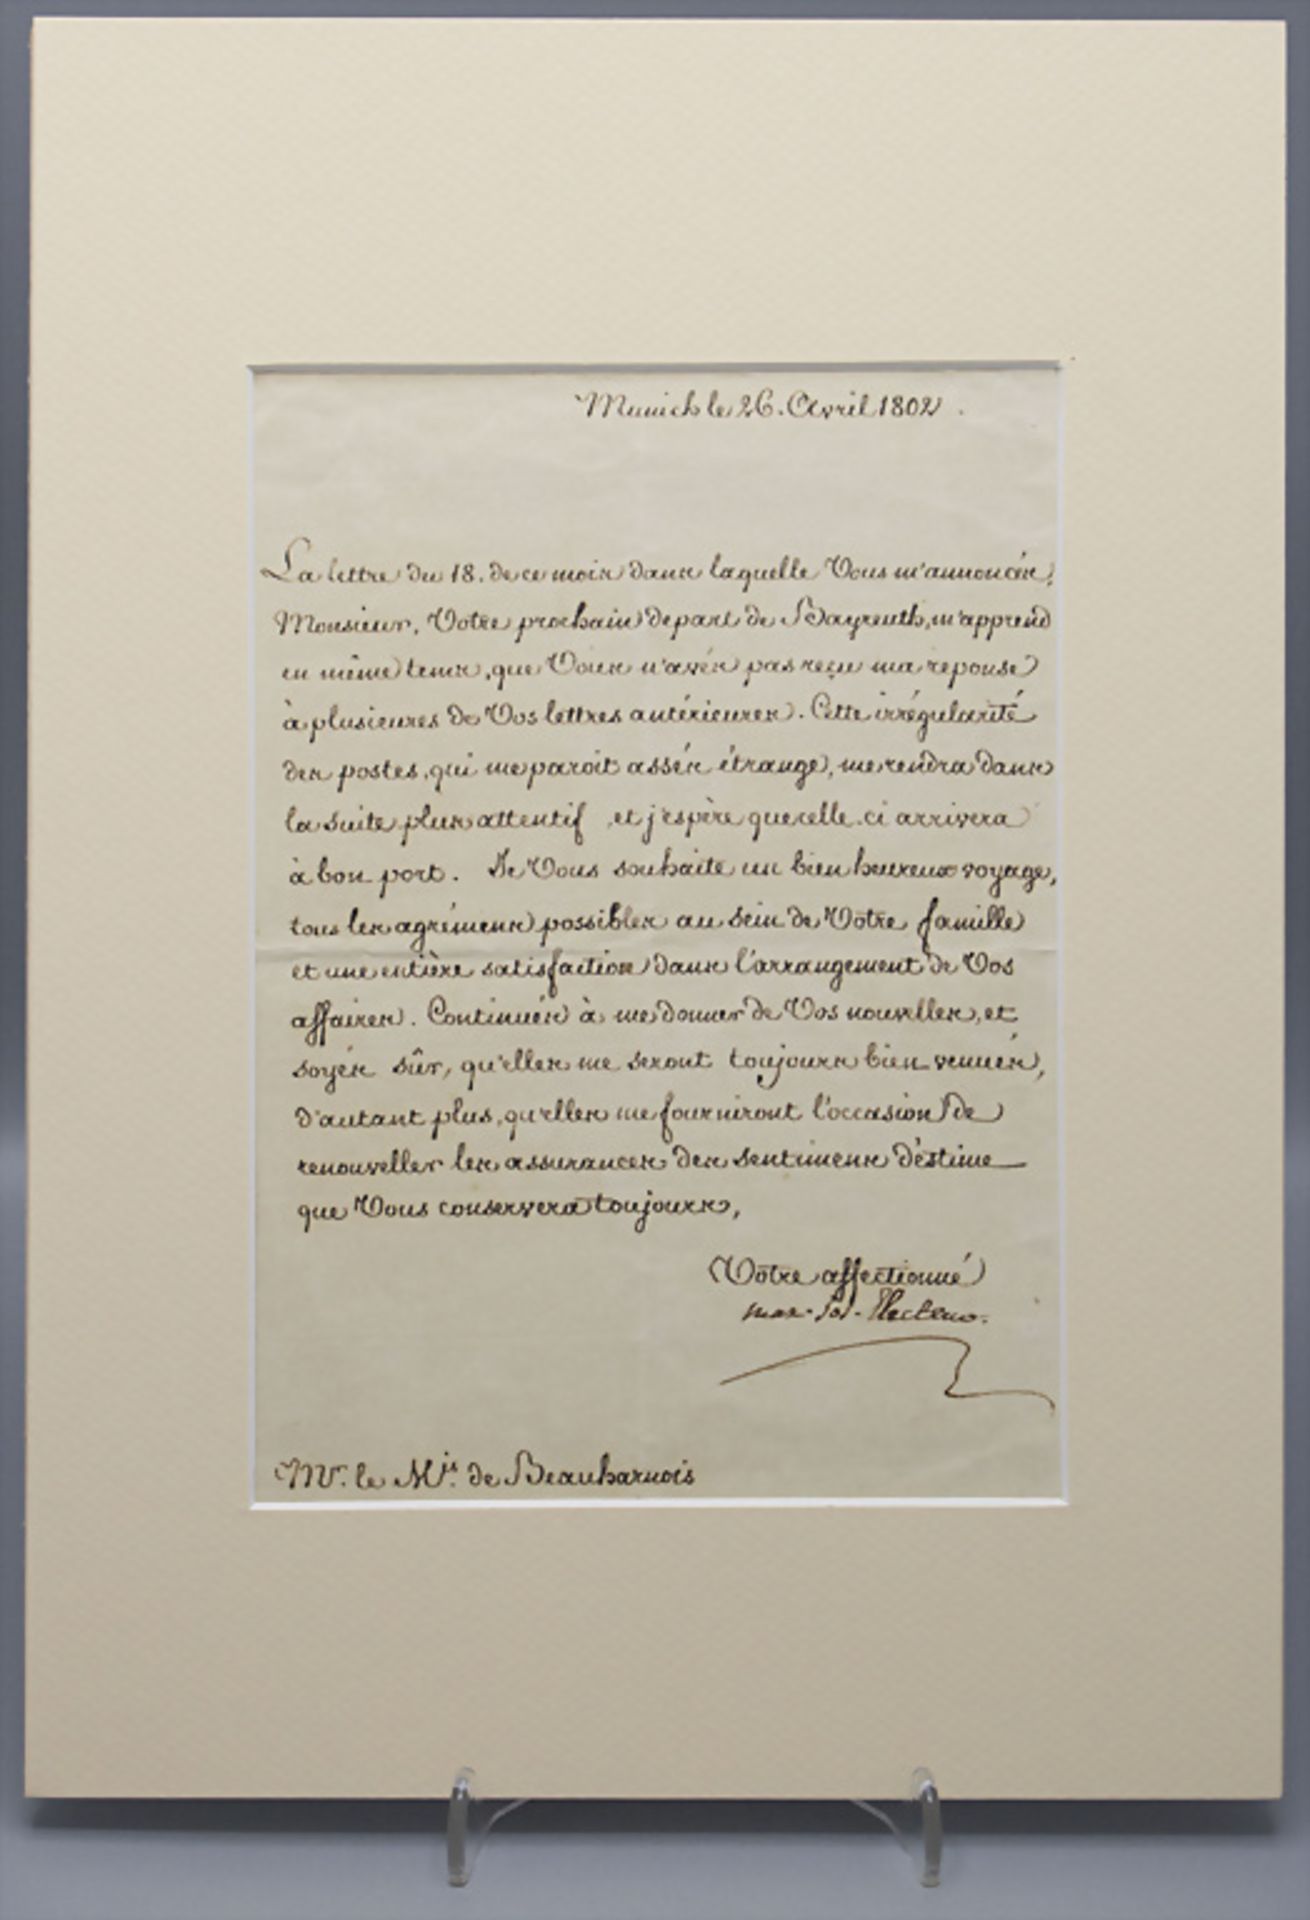 Munich le 26. Avril 1802.
La lettre du 18. de ce mois dans laquelle Vous m'annoncés,
Monsieur, Votre prochain depart de Bayreuth, m'apprend
en même tems, que Vous n'avés pas reçu ma reponse
à plusieures de Vos lettres antérieures. Cette irrégularité
des postes, qui me paroit assés étrange, me rendra dans
la suite plus attentif, et j'espère que celle-ci arrivera
à bon port. Je Vous souhaite un bien heureux voyage,
tous les agrémens possibles au sein de Votre famille
et une entière satisfaction dans l'arrangement de Vos
affaires. Continués à me donner de Vos nouvelles, et
soyés sûr, qu'elles me seront toujours bien venués,
d'autant plus, qu'elles me fourniront l'occasion de
renouveller les assurances des sentimens d'éstime
que Vous conservera toujours,
Votre affectionné
Max. Jos. Electeur.
Mr. le Mis. de Beauharnois